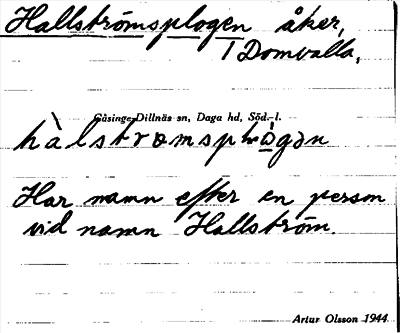 Hallströmsplogen åker,
/ Domvalla,
Gåsinge-Dillnäs sn, Daga hd, Söd. l.
Har namn efter en person
vid namn Hallström.
Artur Olsson 1944